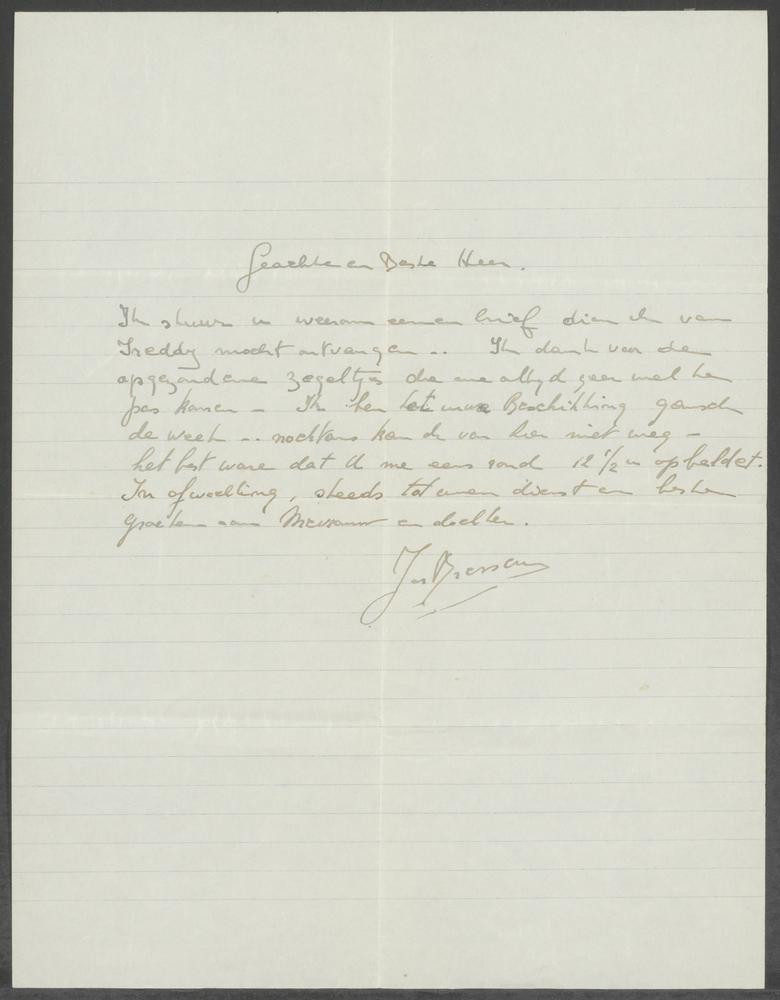 Geachte en Beste Heer.
Ik stuur u weerom eenen brief dien ik van
Freddy mocht ontvangen .. Ik dank voor de
opgezondene zegeltjes die me altyd zeer wel te
pas komen – Ik ben tot uwe Beschikking gansch
de week .. nochtans kan ik van hier niet weg –
het best ware dat U me eens rond 12 1/2 u opbeldet.
In afwachting, steeds tot uwen dienst en beste
groeten aan Mevrouw en dochter.
Jos